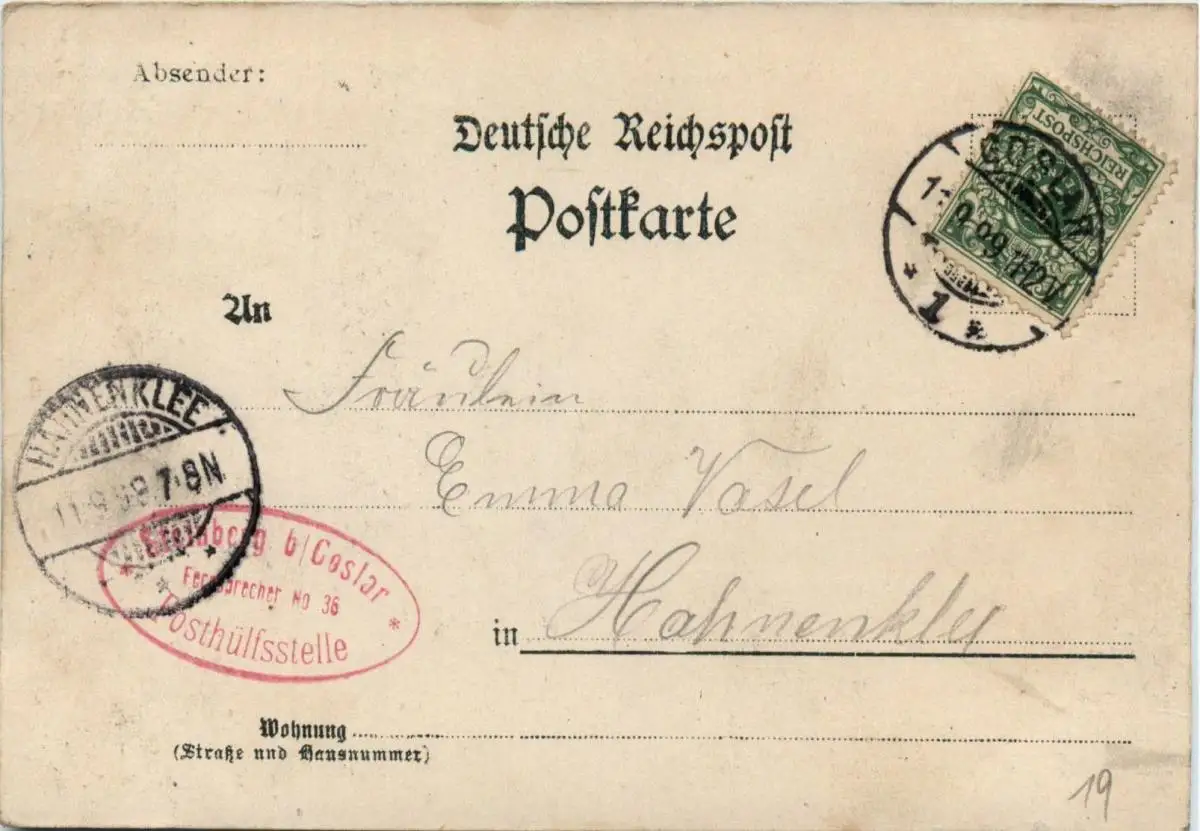 Absender:
Deutsche Reichspost
Postkarte
REICHSPOST
GOSLAR
11.9.99 11-12V
* 1 *
An
Fräulein
Emma Vasel
in Hahnenkley
HAHNENKLEE
11.9.99 7-8N.
Steinberg b/Goslar
Fernsprecher No 36
* Posthülfsstelle *
Wohnung
(Straße und Hausnummer)
19